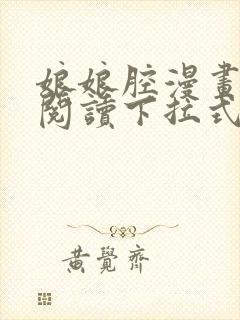 娘娘腔漫畫
閱讀下拉式
黃覺齊